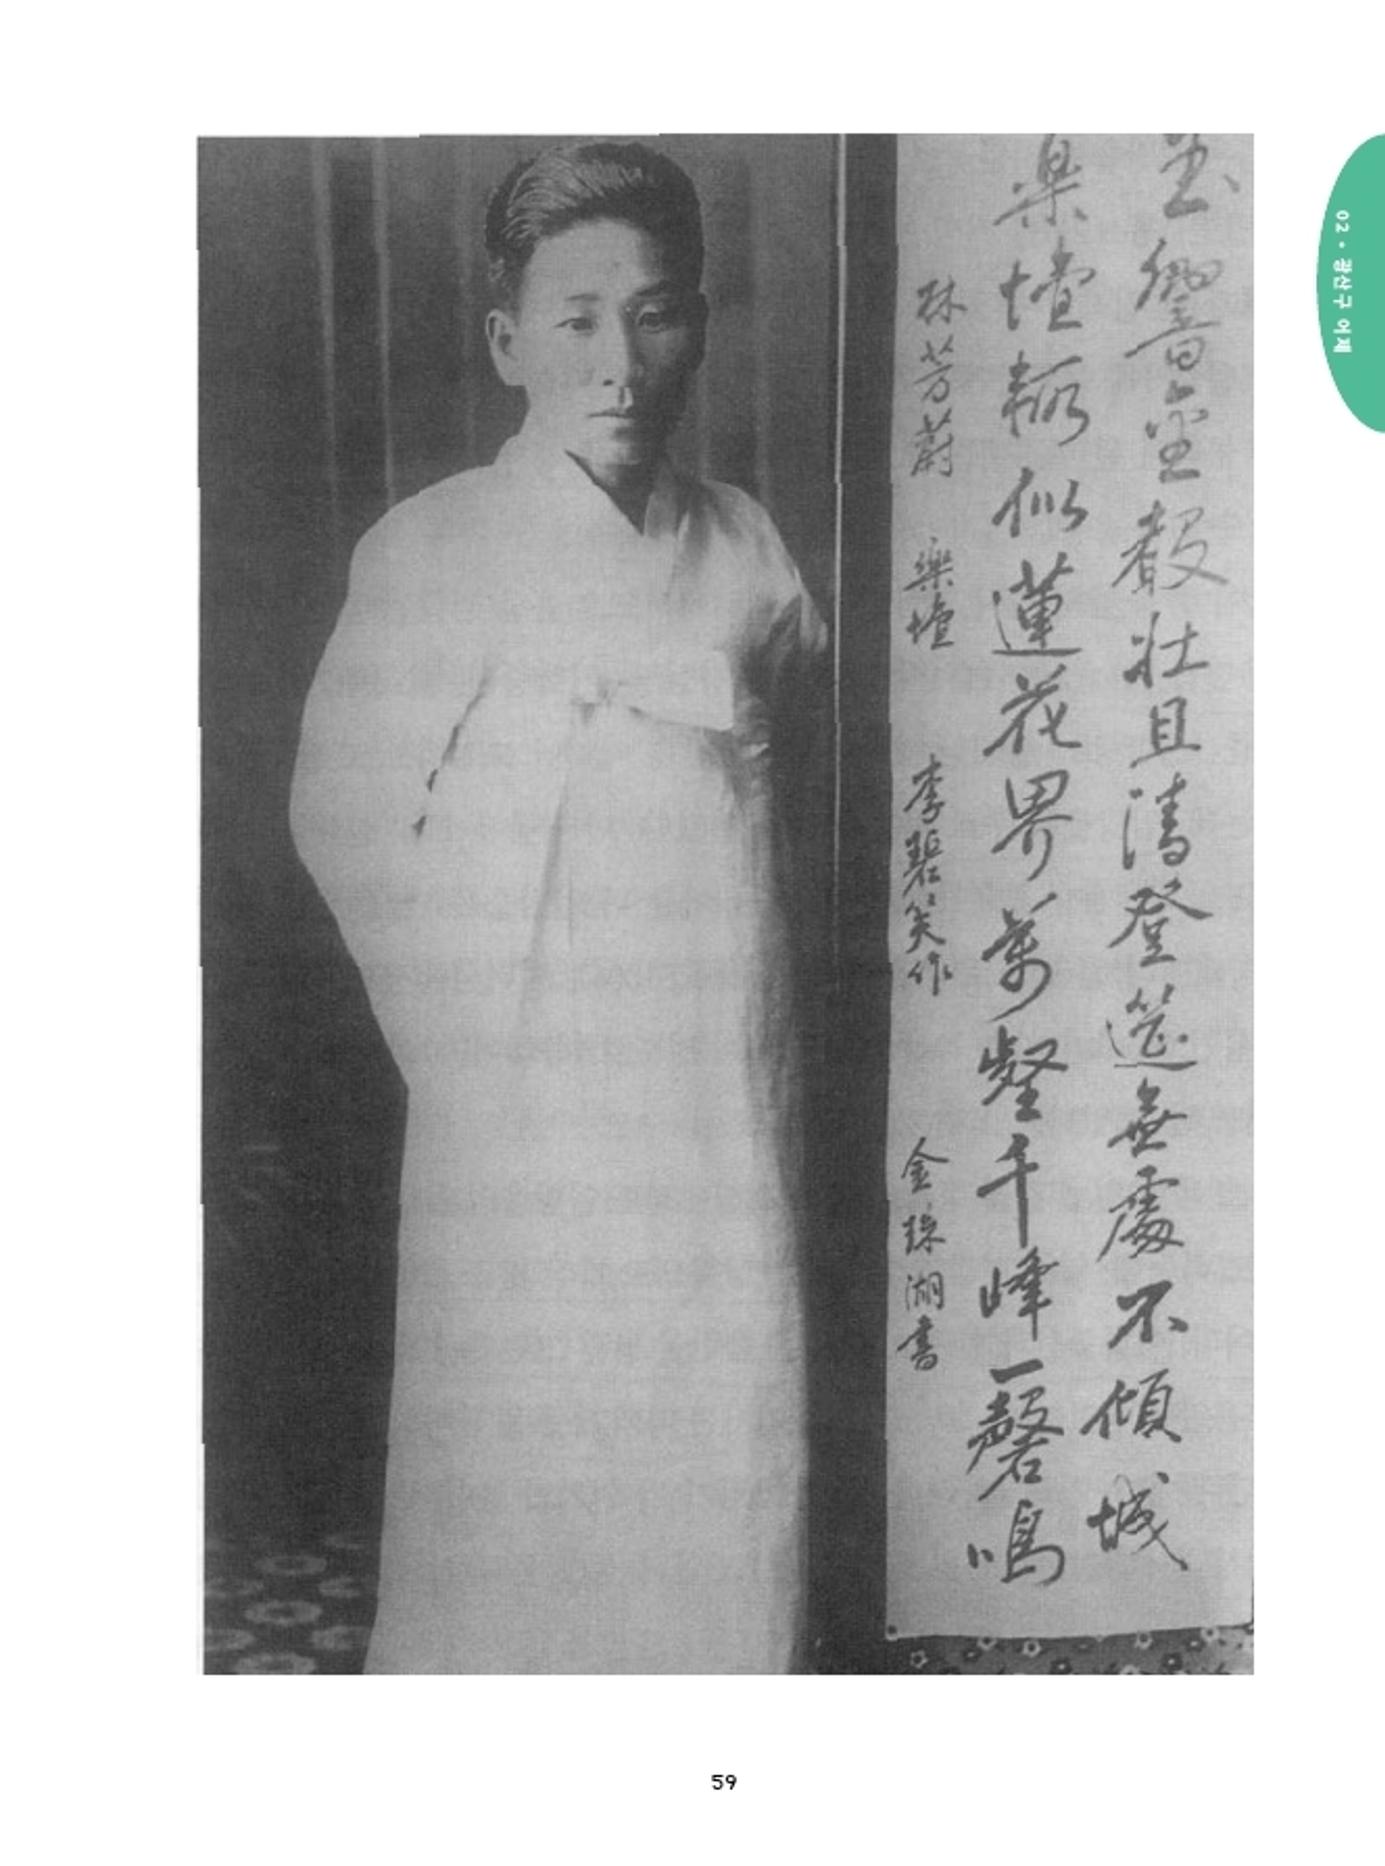 02 • 광산구 어제
玉響金聲壯且清登筵無處不傾城
樂壇似蓮花界萬壑千峰一磬鳴
林芳蔚 樂壇 李碧笑作 金珠湖書
59